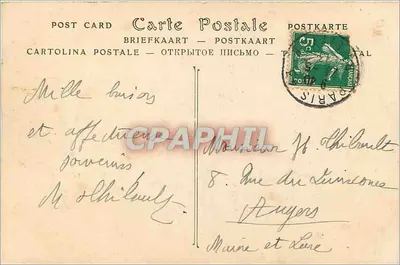 POST CARD Carte Postale POSTKARTE
BRIEFKAART — POSTKAART
CARTOLINA POSTALE — ОТКРЫТОЕ ПИСЬМО —
5c
PARIS
Mille baisers
et affectueux
souvenirs
M Thibault
CPAPHIL
Monsieur Thibault
8. Rue des Quinconces
Angers
Maine et Loire